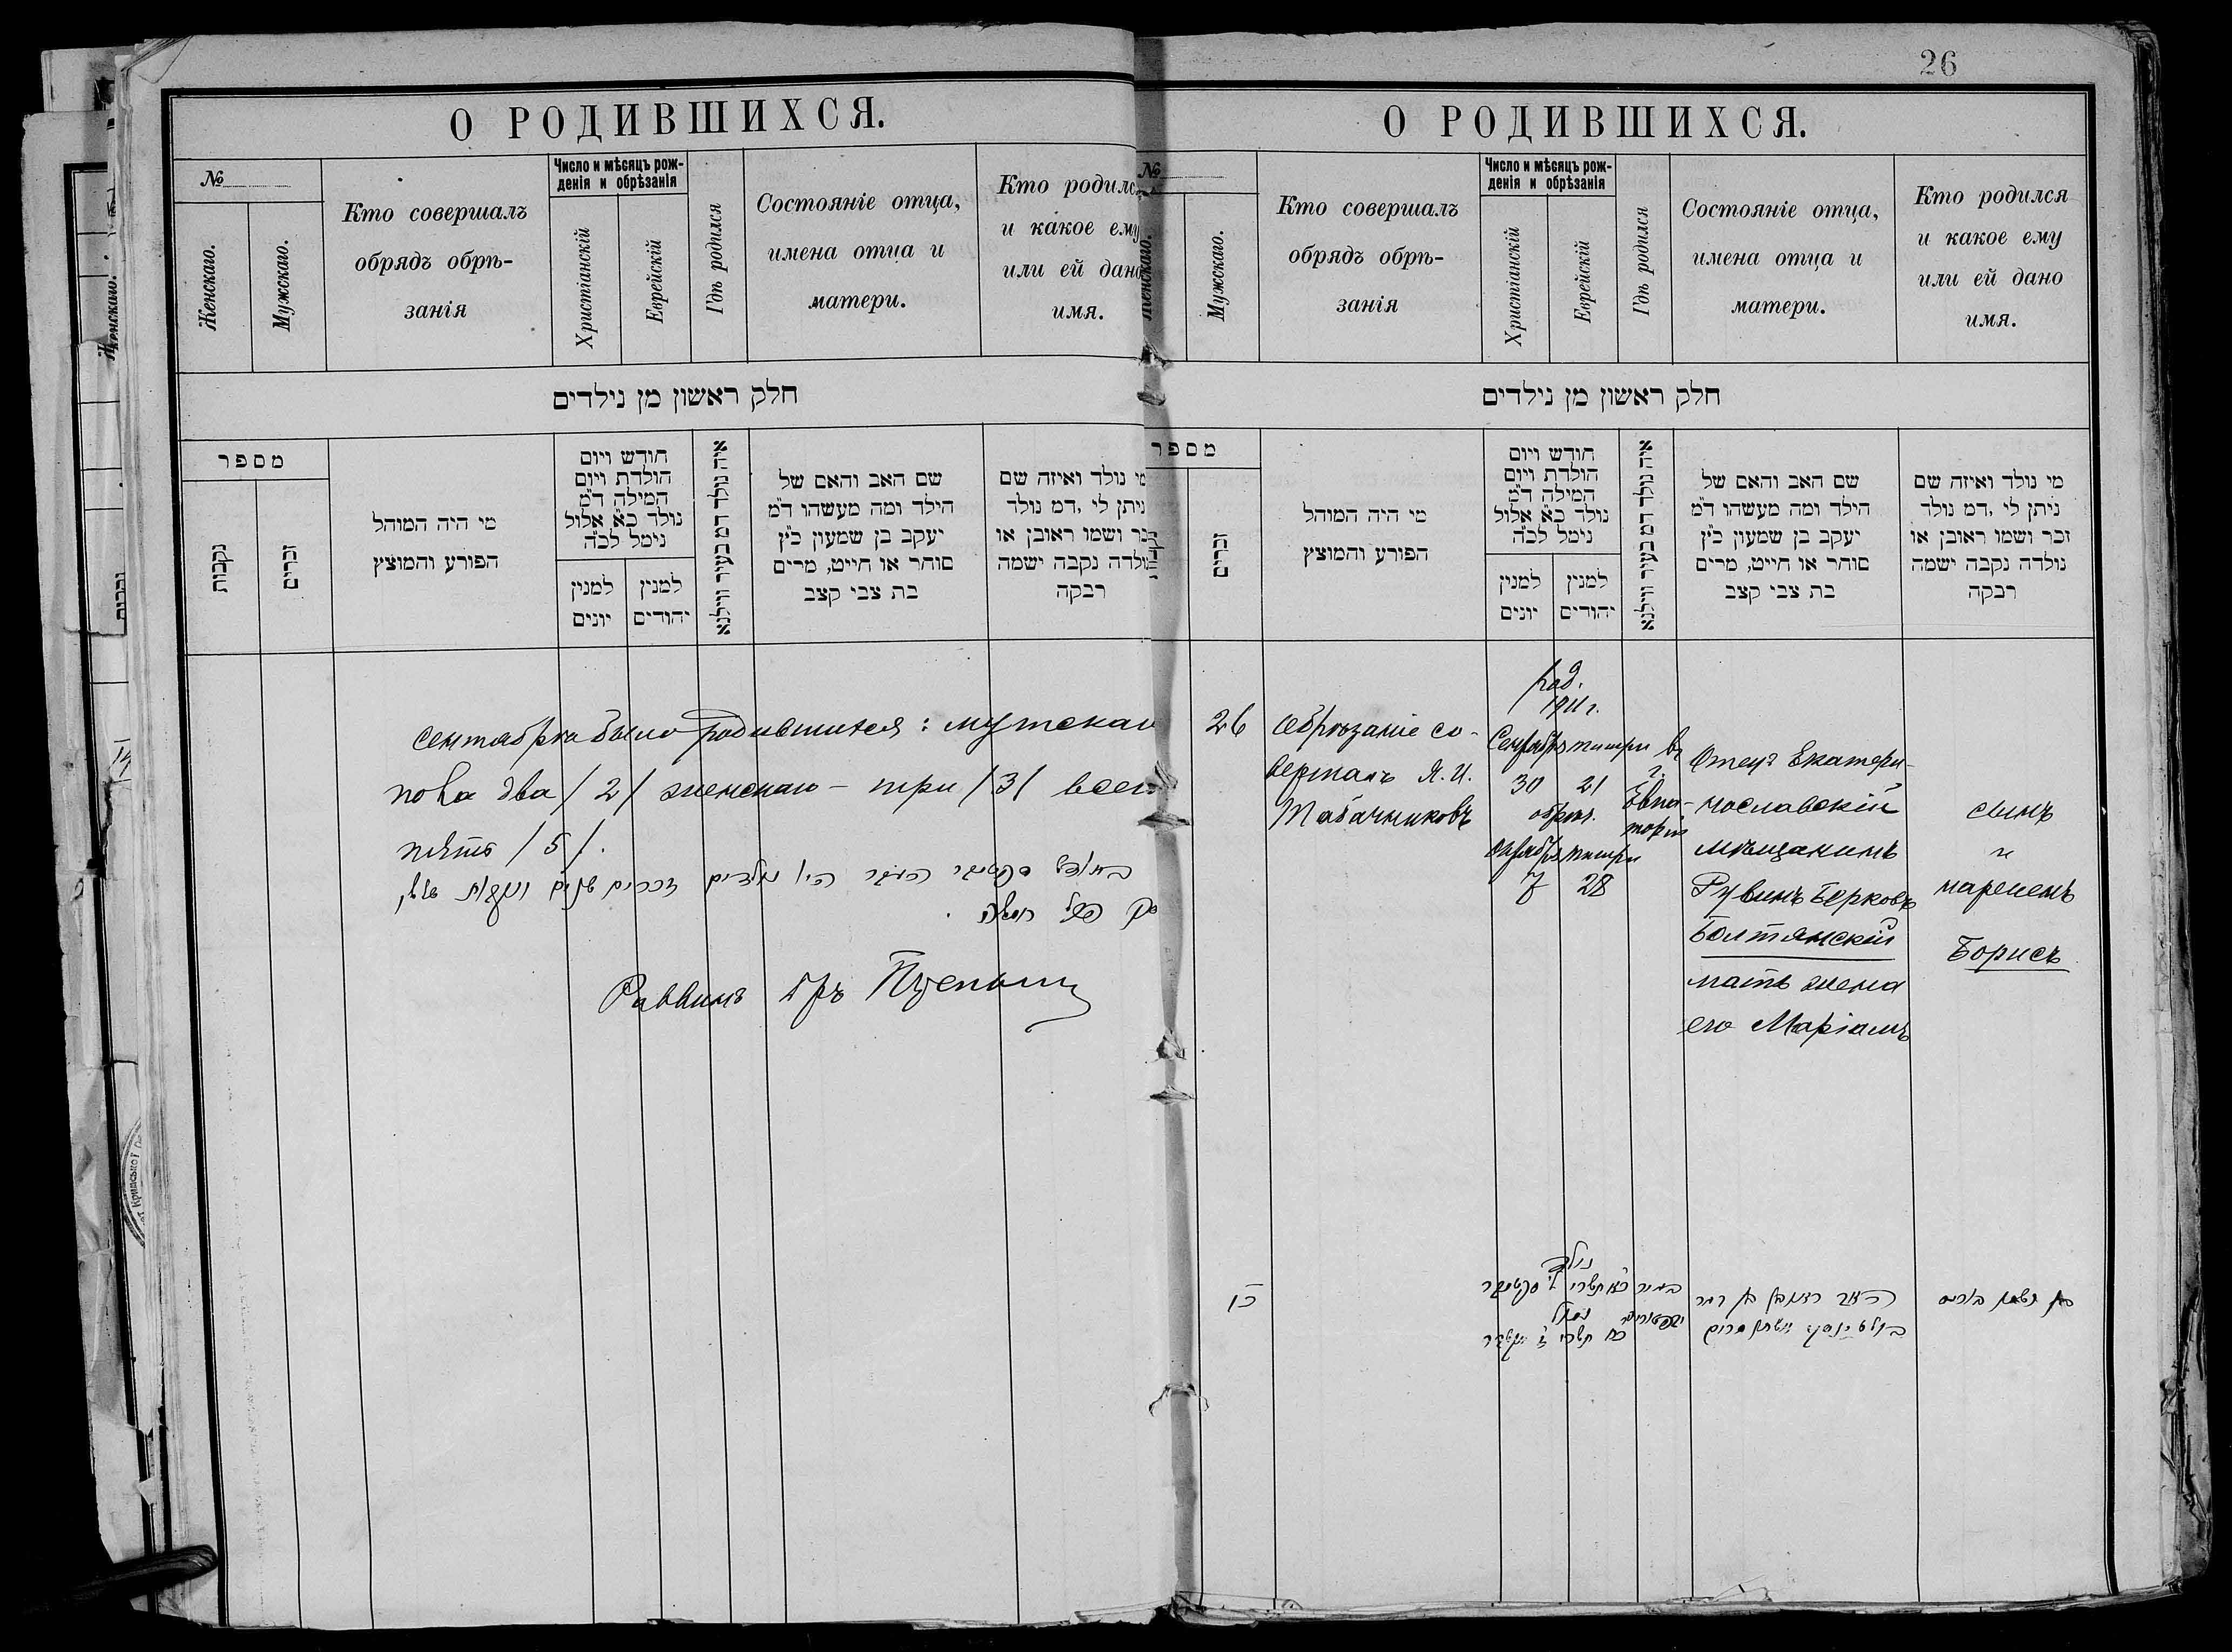 О РОДИВШИХСЯ.
№
Женскаго.
Мужскаго.
Кто совершалъ
обрядъ обрѣ-
занія
Число и мѣсяцъ рож-
денія и обрѣзанія
Христіанскій
Еврейскій
Гдѣ родился
Состояніе отца,
имена отца и
матери.
Кто родилс
и какое ему
или ей дано
имя.
חלק ראשון מן נילדים
מספר
נקבות
זכרים
מי היה המוהל
הפורע והמוצץ
חודש ויום
הולדת ויום
המילה ד"מ
נולד כ"א אלול
נימל לכ"ה
למנין
יונים
למנין
יהודים
איה נולד דמ בעיר ווילנא
שם האב והאם של
הילד ומה מעשהו ד"מ
יעקב בן שמעון כ"ץ
סוחר או חייט, מרים
בת צבי קצב
מי נולד ואיזה שם
ניתן לי, דמ נולד
זכר ושמו ראובן או
נולדה נקבה ישמה
רבקה
сентабря было родившихся: мужскаго
пола два /2/ женскаго - три /3/ всего
пять /5/.
Раввинъ
26
О РОДИВШИХСЯ.
№
Женскаго.
Мужскаго.
Кто совершалъ
обрядъ обрѣ-
занія
Число и мѣсяцъ рож-
денія и обрѣзанія
Христіанскій
Еврейскій
Гдѣ родился
Состояніе отца,
имена отца и
матери.
Кто родился
и какое ему
или ей дано
имя.
חלק ראשון מן נילדים
מספר
זכרים
מי היה המוהל
הפורע והמוצץ
חודש ויום
הולדת ויום
המילה ד"מ
נולד כ"א אלול
נימל לכ"ה
למנין
יונים
למנין
יהודים
איה נולד דמ בעיר ווילנא
שם האב והאם של
הילד ומה מעשהו ד"מ
יעקב בן שמעון כ"ץ
סוחר או חייט, מרים
בת צבי קצב
מי נולד ואיזה שם
ניתן לי, דמ נולד
זכר ושמו ראובן או
נולדה נקבה ישמה
רבקה
26
Обрѣзаніе со-
вершалъ Я.И.
Табачниковъ
род.
1911 г.
Сентябрь тишри
30 21
обрѣз.
Октябрь тишри
7 28
въ
г.
Евпа-
торіи
Отецъ Екатери-
нославскій
мѣщанинъ
Рувинъ Берковъ
Болтянскій
мать жена
его Маріамъ
сынъ
и
нареченъ
Борисъ